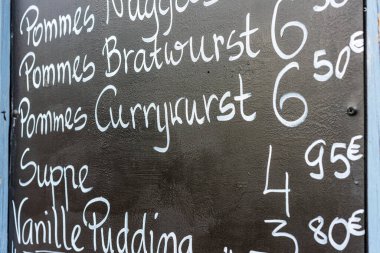 Pommes Nuggets
Pommes Bratwurst 6 50€
Pommes Currywurst 6
Suppe 4 95€
Vanille Pudding 3 80€